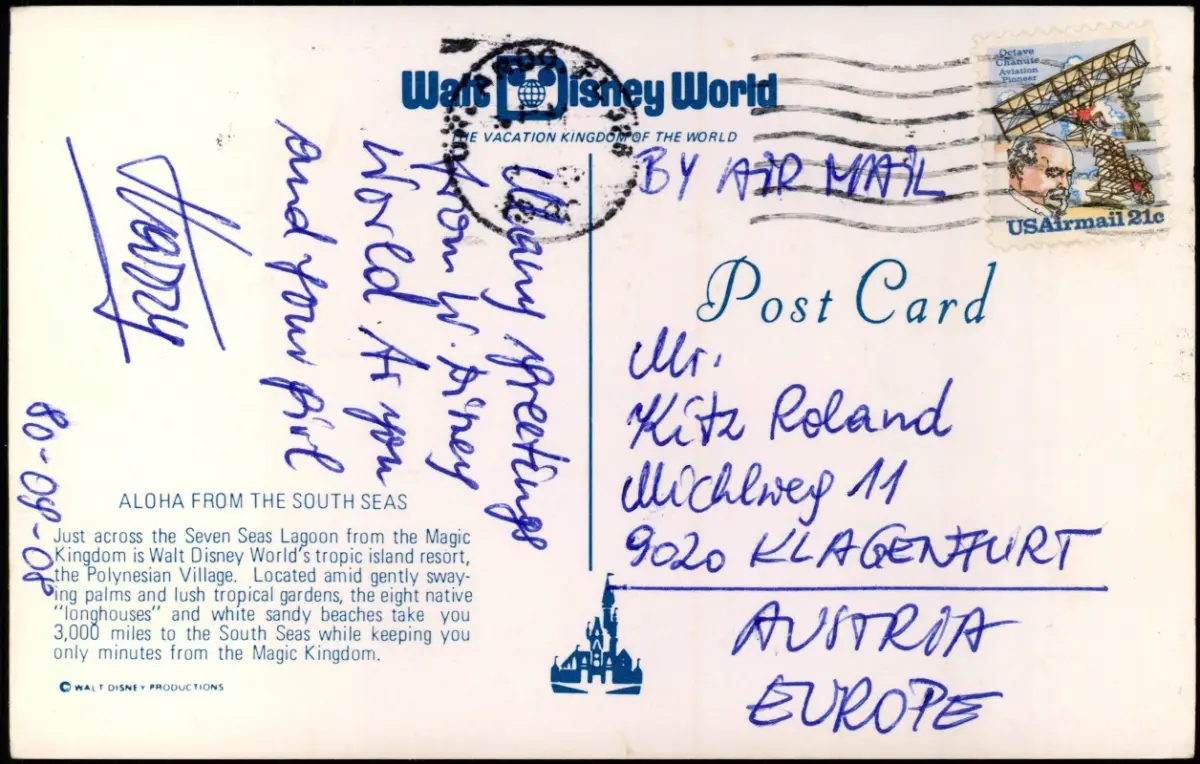 Walt Disney World
THE VACATION KINGDOM OF THE WORLD
Octave
Chanute
Aviation
Pioneer
USAirmail 21c
BY AIR MAIL
Post Card
Mr.
Kitz Roland
Michlweg 11
9020 KLAGENFURT
AUSTRIA
EUROPE
Many greetings
from W. Disney
World. to you
and your girl
Harry
80-09-08
ALOHA FROM THE SOUTH SEAS
Just across the Seven Seas Lagoon from the Magic
Kingdom is Walt Disney World's tropic island resort,
the Polynesian Village. Located amid gently sway-
ing palms and lush tropical gardens, the eight native
"longhouses" and white sandy beaches take you
3,000 miles to the South Seas while keeping you
only minutes from the Magic Kingdom.
© WALT DISNEY PRODUCTIONS